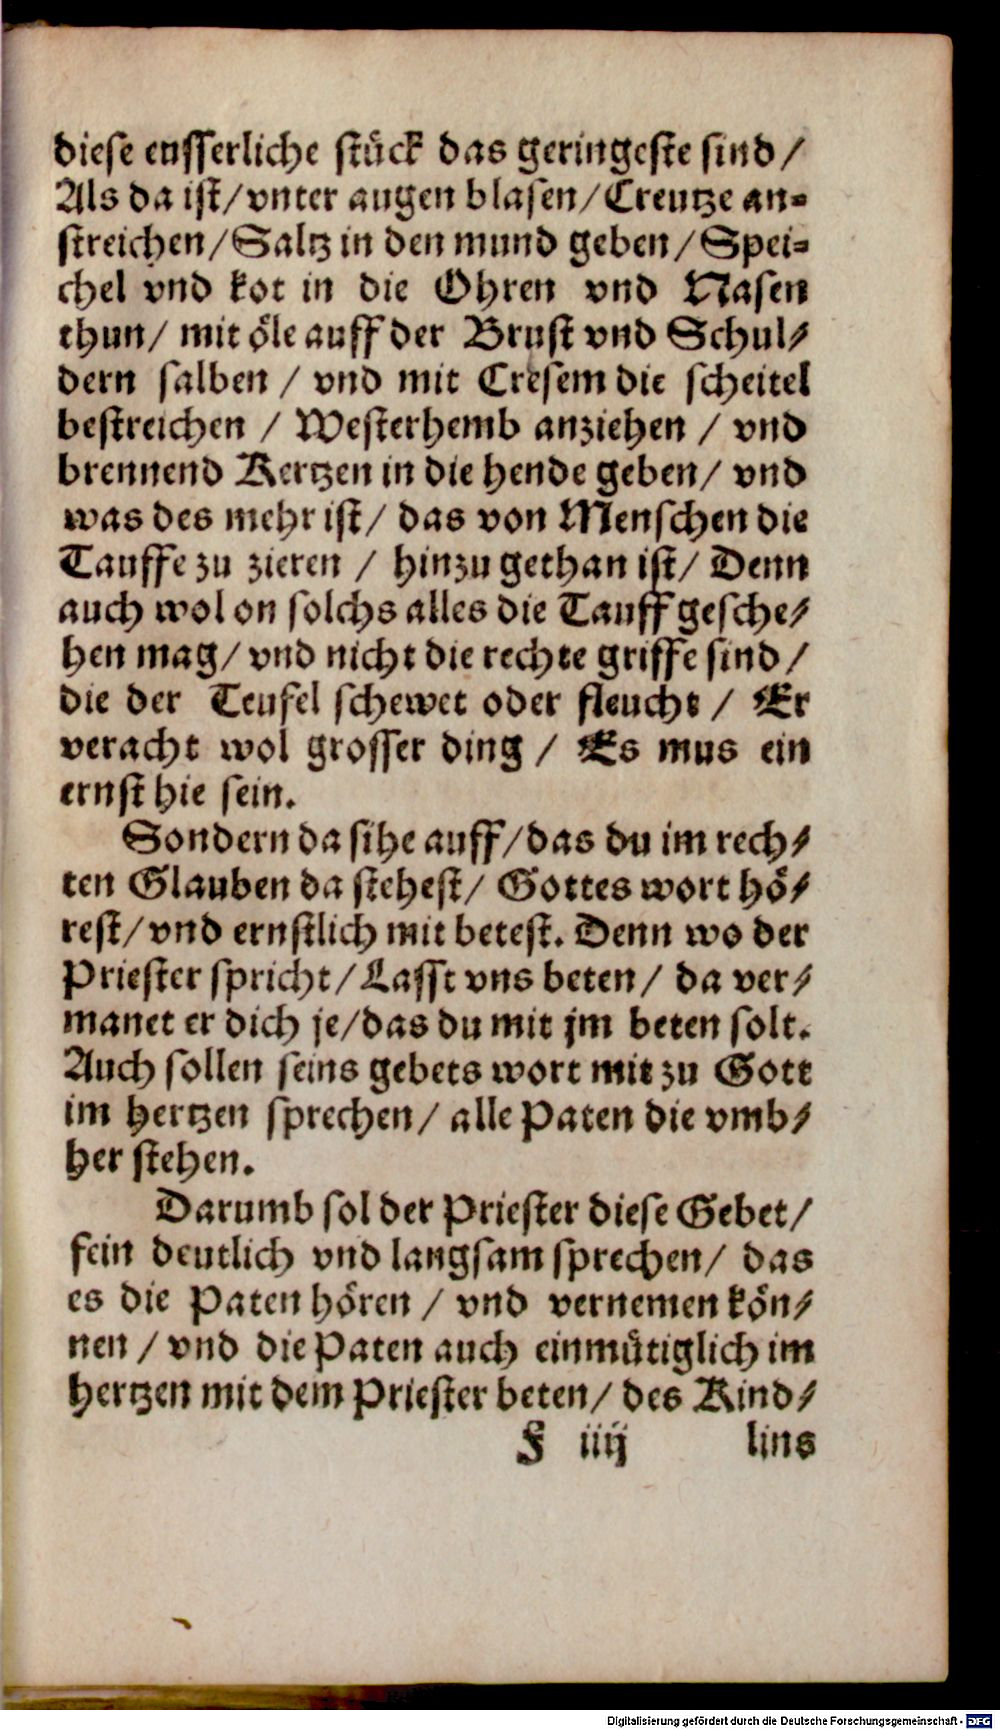 diese eusserliche stück das geringeste sind /
Als da ist / vnter augen blasen / Creutze an-
streichen / Saltz in den mund geben / Spei-
chel vnd kot in die Ohren vnd Nasen
thun / mit öle auff der Brust vnd Schul-
dern salben / vnd mit Cresem die scheitel
bestreichen / Westerhemb anziehen / vnd
brennend Kertzen in die hende geben / vnd
was des mehr ist / das von Menschen die
Tauffe zu zieren / hinzu gethan ist / Denn
auch wol on solchs alles die Tauff gesche-
hen mag / vnd nicht die rechte griffe sind /
die der Teufel schewet oder fleucht / Er
veracht wol grosser ding / Es mus ein
ernst hie sein.
Sondern da sihe auff / das du im rech-
ten Glauben da stehest / Gottes wort hö-
rest / vnd ernstlich mit betest. Denn wo der
Priester spricht / Lasst vns beten / da ver-
manet er dich je / das du mit jm beten solt.
Auch sollen seins gebets wort mit zu Gott
im hertzen sprechen / alle Paten die vmb-
her stehen.
Darumb sol der Priester diese Gebet /
fein deutlich vnd langsam sprechen / das
es die Paten hören / vnd vernemen kön-
nen / vnd die Paten auch einmütiglich im
hertzen mit dem Priester beten / des Kind-
F iiij lins
Digitalisierung gefördert durch die Deutsche Forschungsgemeinschaft - DFG